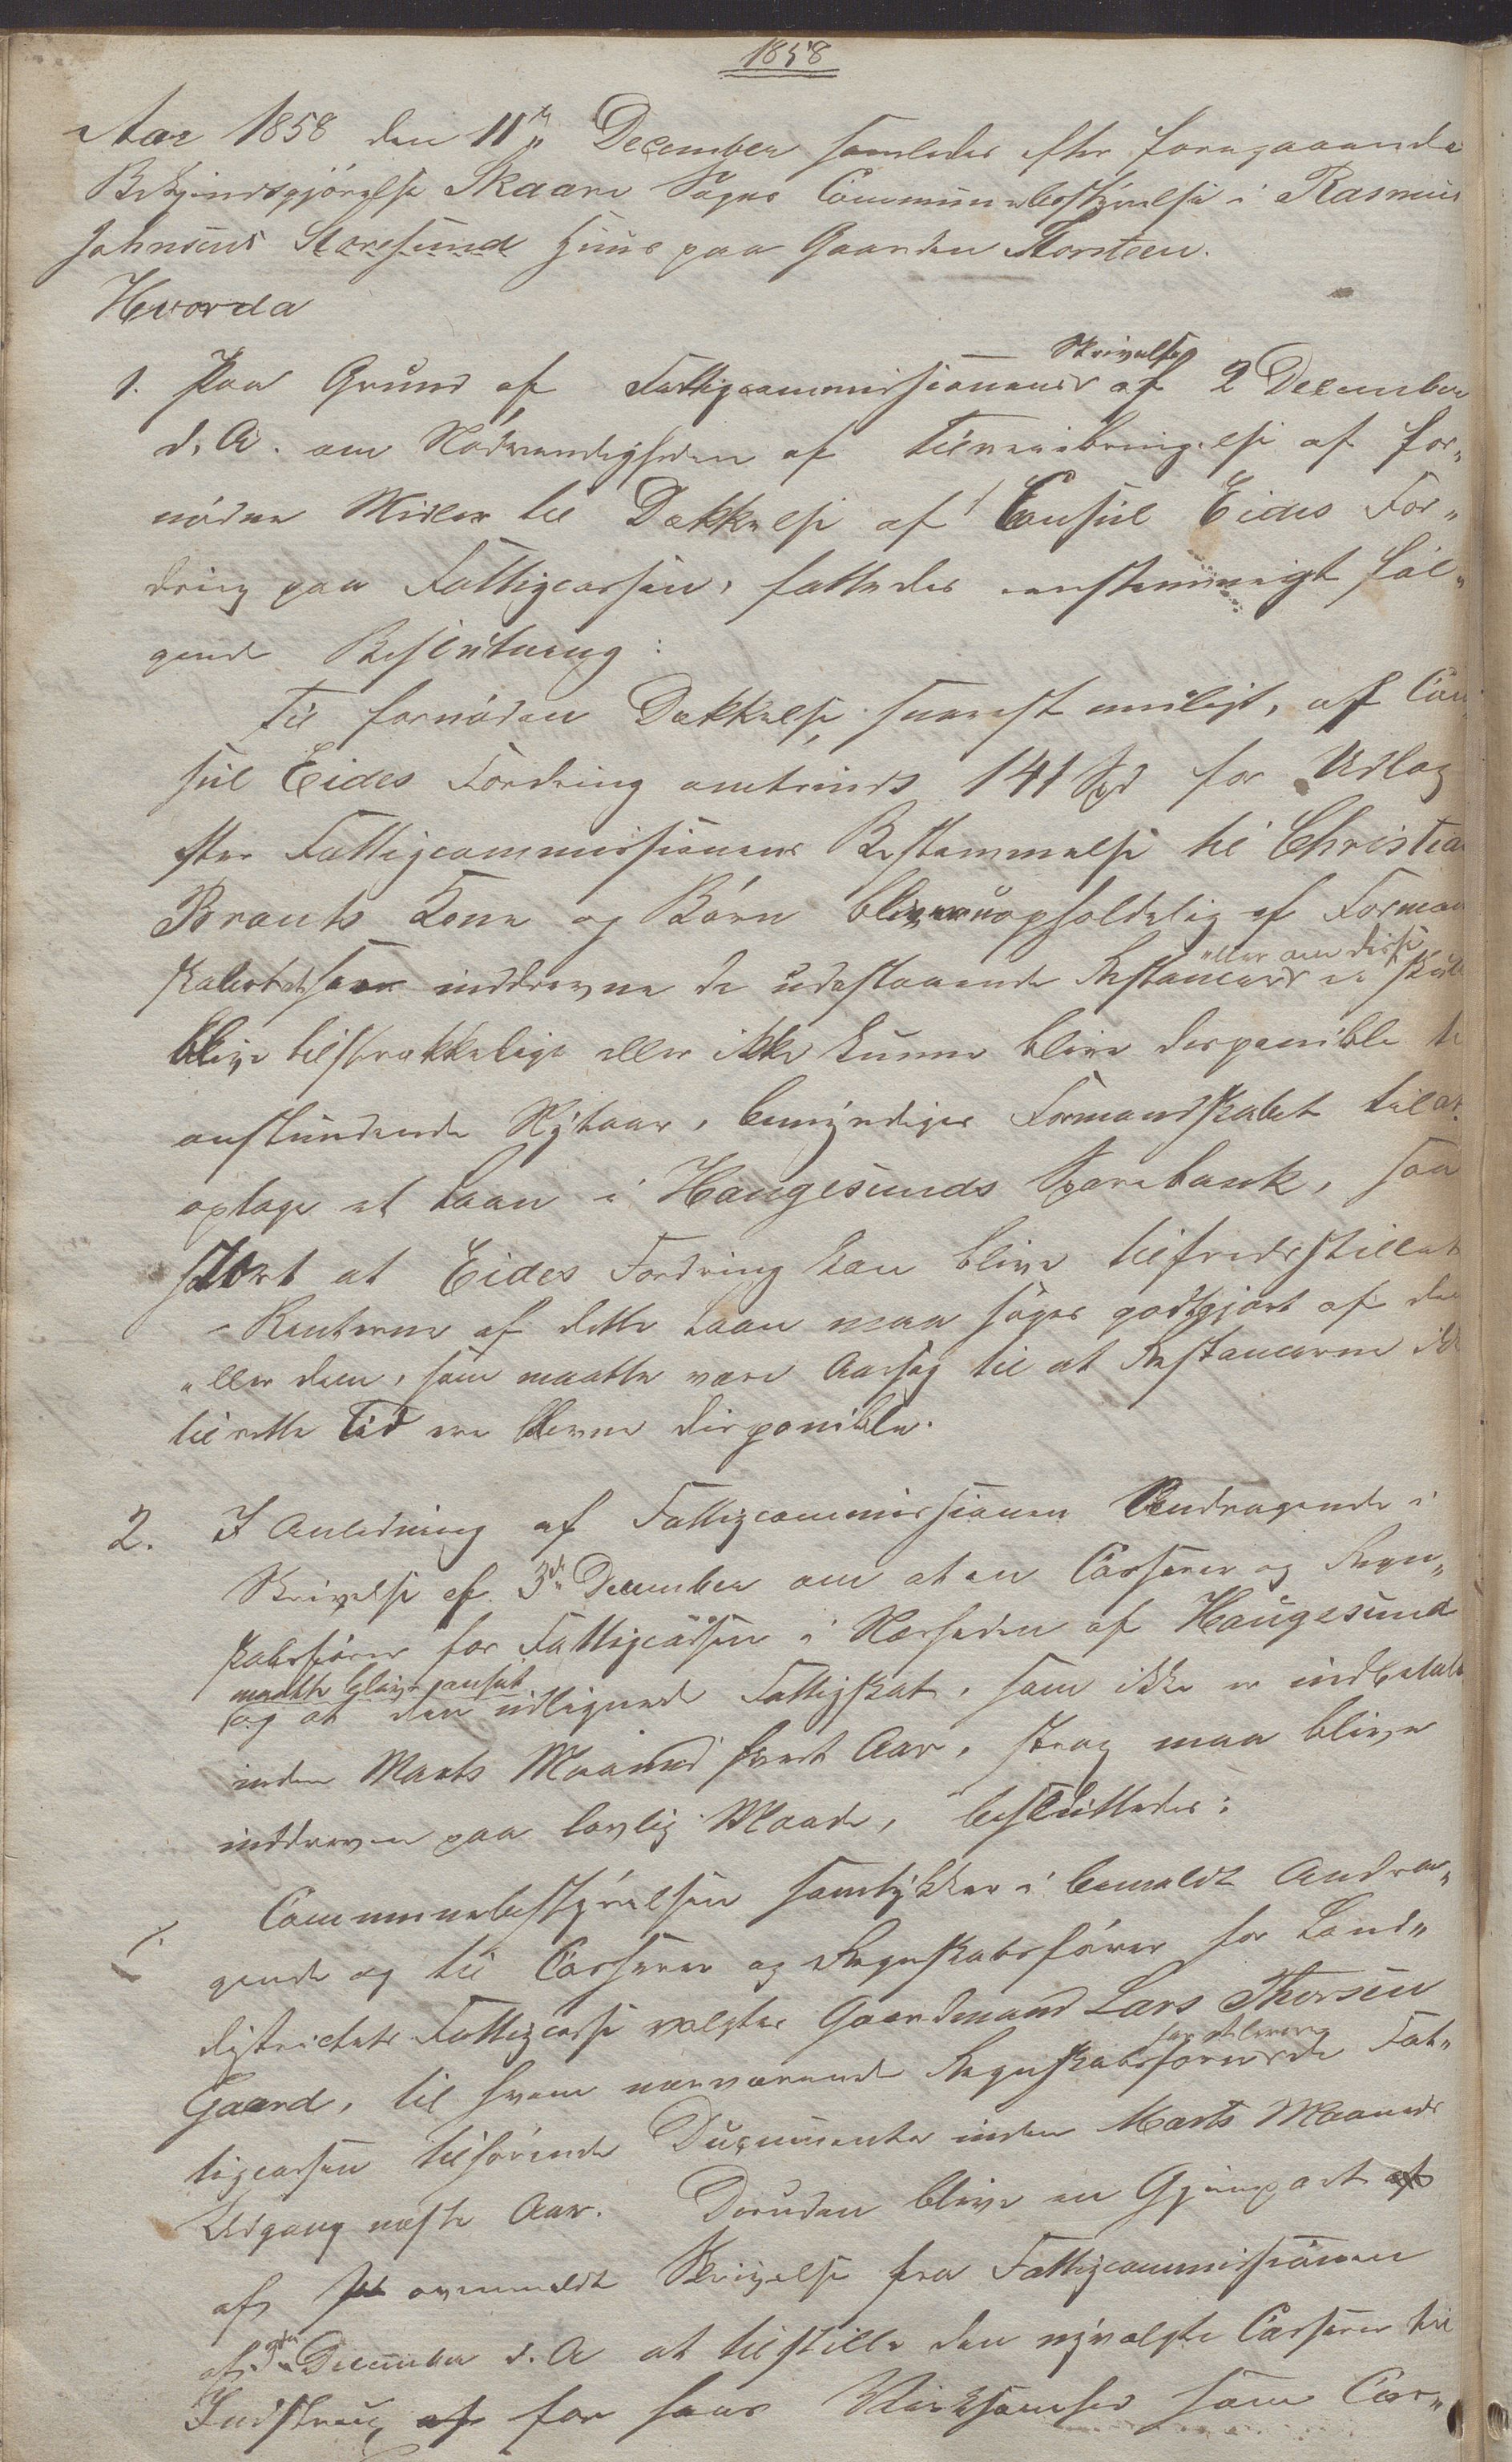 1858
Aar 1858 den 11te December samledes efter foregaaende
Bekjendtgjörelse Skaare Sogns Communebestyrelse i Rasmus
Johnsens Storesund Huus paa Gaarden Storsteen.
Hvorda
1. Paa Grund af Fattigcommissionens Skrivelse af 2 December
d. A. om Nödvendigheden af Tilveiebringelse af for„
nödne Midler til Dækkelse af Consul Eides For„
dring paa Fattigcassen, fattedes eenstemmigt föl„
gende Beslutning:
Til fornöden Dækkelse, snarest muligt, af Con
sul Eides Fordring omtrends 141 Spd for Udlæg
efter Fattigcommissionens Bestemmelse til Christian
Brants Kone og Börn bliver uopholdelig af Formand
skabet at inddrevne de udestaaende Restancer eller om disse ei skulle
blive tilstrækkelige eller ikke kunne blive disponible til
anstundende Nytaar, bemyndiges Formandskabet til at
optage et Laan i Haugesunds Sparebank, saa
stort at Eides Fordring kan blive tilfredsstillet
- Renterne af dette Laan maa söges godtgjort af den
eller dem, som maatte være Aarsag til at Restancerne ikke
til rette Tid ere blevne disponible.
2. I Anledning af Fattigcommissionen Andragende i
Skrivelse af 3de December om at en Casserer og Regn„
skabsförer for Fattigcassen i Nærheden af Haugesund
maatte blive ansat
og at den udlignede Fattigskat, som ikke er indbetalt
inden Marts Maaned hvert Aar, strax maa blive
inddreven paa lovlig Maade, besluttedes:
Communebestyrelsen samtykker i bemeldt Andra„
gende og til Casserer og Regnskabsförer for Land„
districtets Fattigcasse valgtes Gaardmand Lars Thorsen
Gaard, til hvem nærværende Regnskabsförer har at levere de Fat„
tigcassen tilhörende Documenter inden Marts Maaneds
Udgang næste Aar. Desuden bliver en Gjenpart af
af ovenmeldt Skrivelse fra Fattigcommissionen
af 3de December d. A at tilstille den nyvalgte Casserer til
Instrux af for hans Virksomhed som Cas„